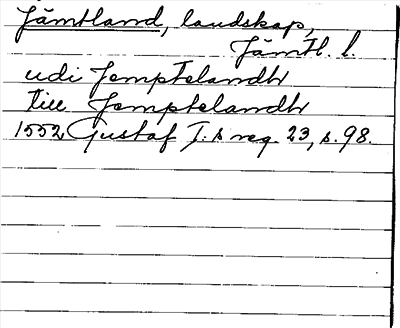 Jämtland, landskap,
Jämtl. l.
udi Jemptelandh
till Jemptelandh
1552 Gustaf I:s reg. 23, s. 98.